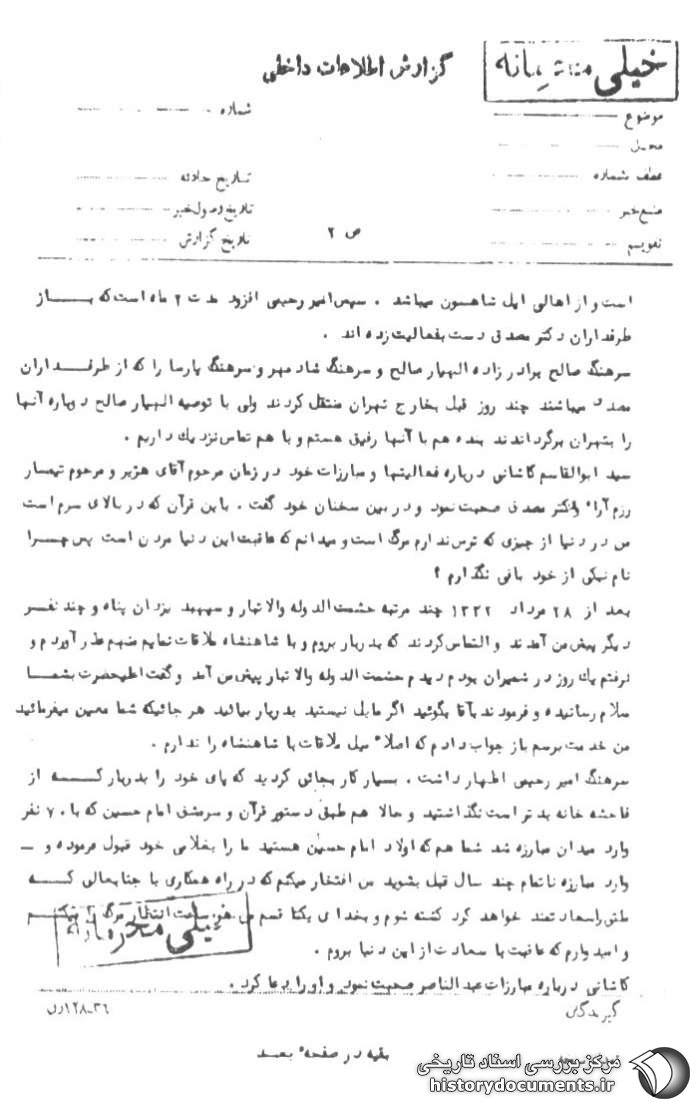 خیلی محرمانه
گزارش اطلاعات داخلی
موضوع
شماره
محل
عطف شماره
تاریخ حادثه
منبع خبر
تاریخ وصول خبر
تقویم
تاریخ گزارش
ص ۲
است و از اهالی ایل شاهسون میباشد . سپس امیر رحیمی افزود مدت ۲ ماه است که بـــاز
طرفداران دکتر مصدق دست بفعالیت زده اند .
سرهنگ صالح برادر زاده الهیار صالح و سرهنگ شاد مهر و سرهنگ پارسا را که از طرفـــداران
مصدق میباشند چند روز قبل بخارج تهران منتقل کردند ولی با توصیه الهیار صالح دوباره آنها
را بتهران برگرداندند بنده هم با آنها رفیق هستم و با هم تماس نزدیك داریم .
سید ابوالقاسم کاشانی درباره فعالیتها و مبارزات خود در زمان مرحوم آقای هژیر و مرحوم تیمسار
رزم آراء و دکتر مصدق صحبت نمود و در بین سخنان خود گفت . باین قرآن که در بالای سرم است
من در دنیا از چیزی که ترس ندارم مرگ است و میدانم که عاقبت این دنیا مردن است پس چـــرا
نام نیکی از خود باقی نگذارم ؟
بعد از ۲۸ مرداد ۱۳۳۲ چند مرتبه حشمت الدوله والاتبار و سپهبد یزدان پناه و چند نفـر
دیگر پیش من آمدند و التماس کردند که بدربار بروم و با شاهنشاه ملاقات نمایم منهم عذر آوردم و
نرفتم یك روز در شمیران بودم دیدم حشمت الدوله والاتبار پیش من آمد و گفت اعلیحضرت بشمـا
سلام رسانیده و فرمودند بآقا بگوئید اگر مایل نیستید بدربار بیائید هر جائیکه شما معین میفرمائید
من خدمت برسم باز جواب دادم که اصلاً میل ملاقات با شاهنشاه را ندارم .
سرهنگ امیر رحیمی اظهار داشت . بسیار کار بجائی کردید که پای خود را بدربار کـــه از
فاحشه خانه بدتر است نگذاشتید و حالا هم طبق دستور قرآن و سرمشق امام حسین که با ۷۰ نفر
وارد میدان مبارزه شد شما هم که اولاد امام حسین هستید ما را بغلامی خود قبول فرموده و ــ
وارد مبارزه ناتمام چند سال قبل بشوید من افتخار میکنم که در راه همکاری با جنابعالی کـــه
ملتی را سعادتمند خواهد کرد کشته شوم و بخدای یکتا قسم من هر ساعت انتظار مرگ را میکشم
و امیدوارم که عاقبت با سعادت از این دنیا بروم .
خیلی محرمانه
کاشانی درباره مبارزات عبدالناصر صحبت نمود و او را دعا کرد .
گیرندگان
۱۲۸-۳۶
بقیه در صفحه بعـد
مرکز بررسی اسناد تاریخی
historydocuments.ir